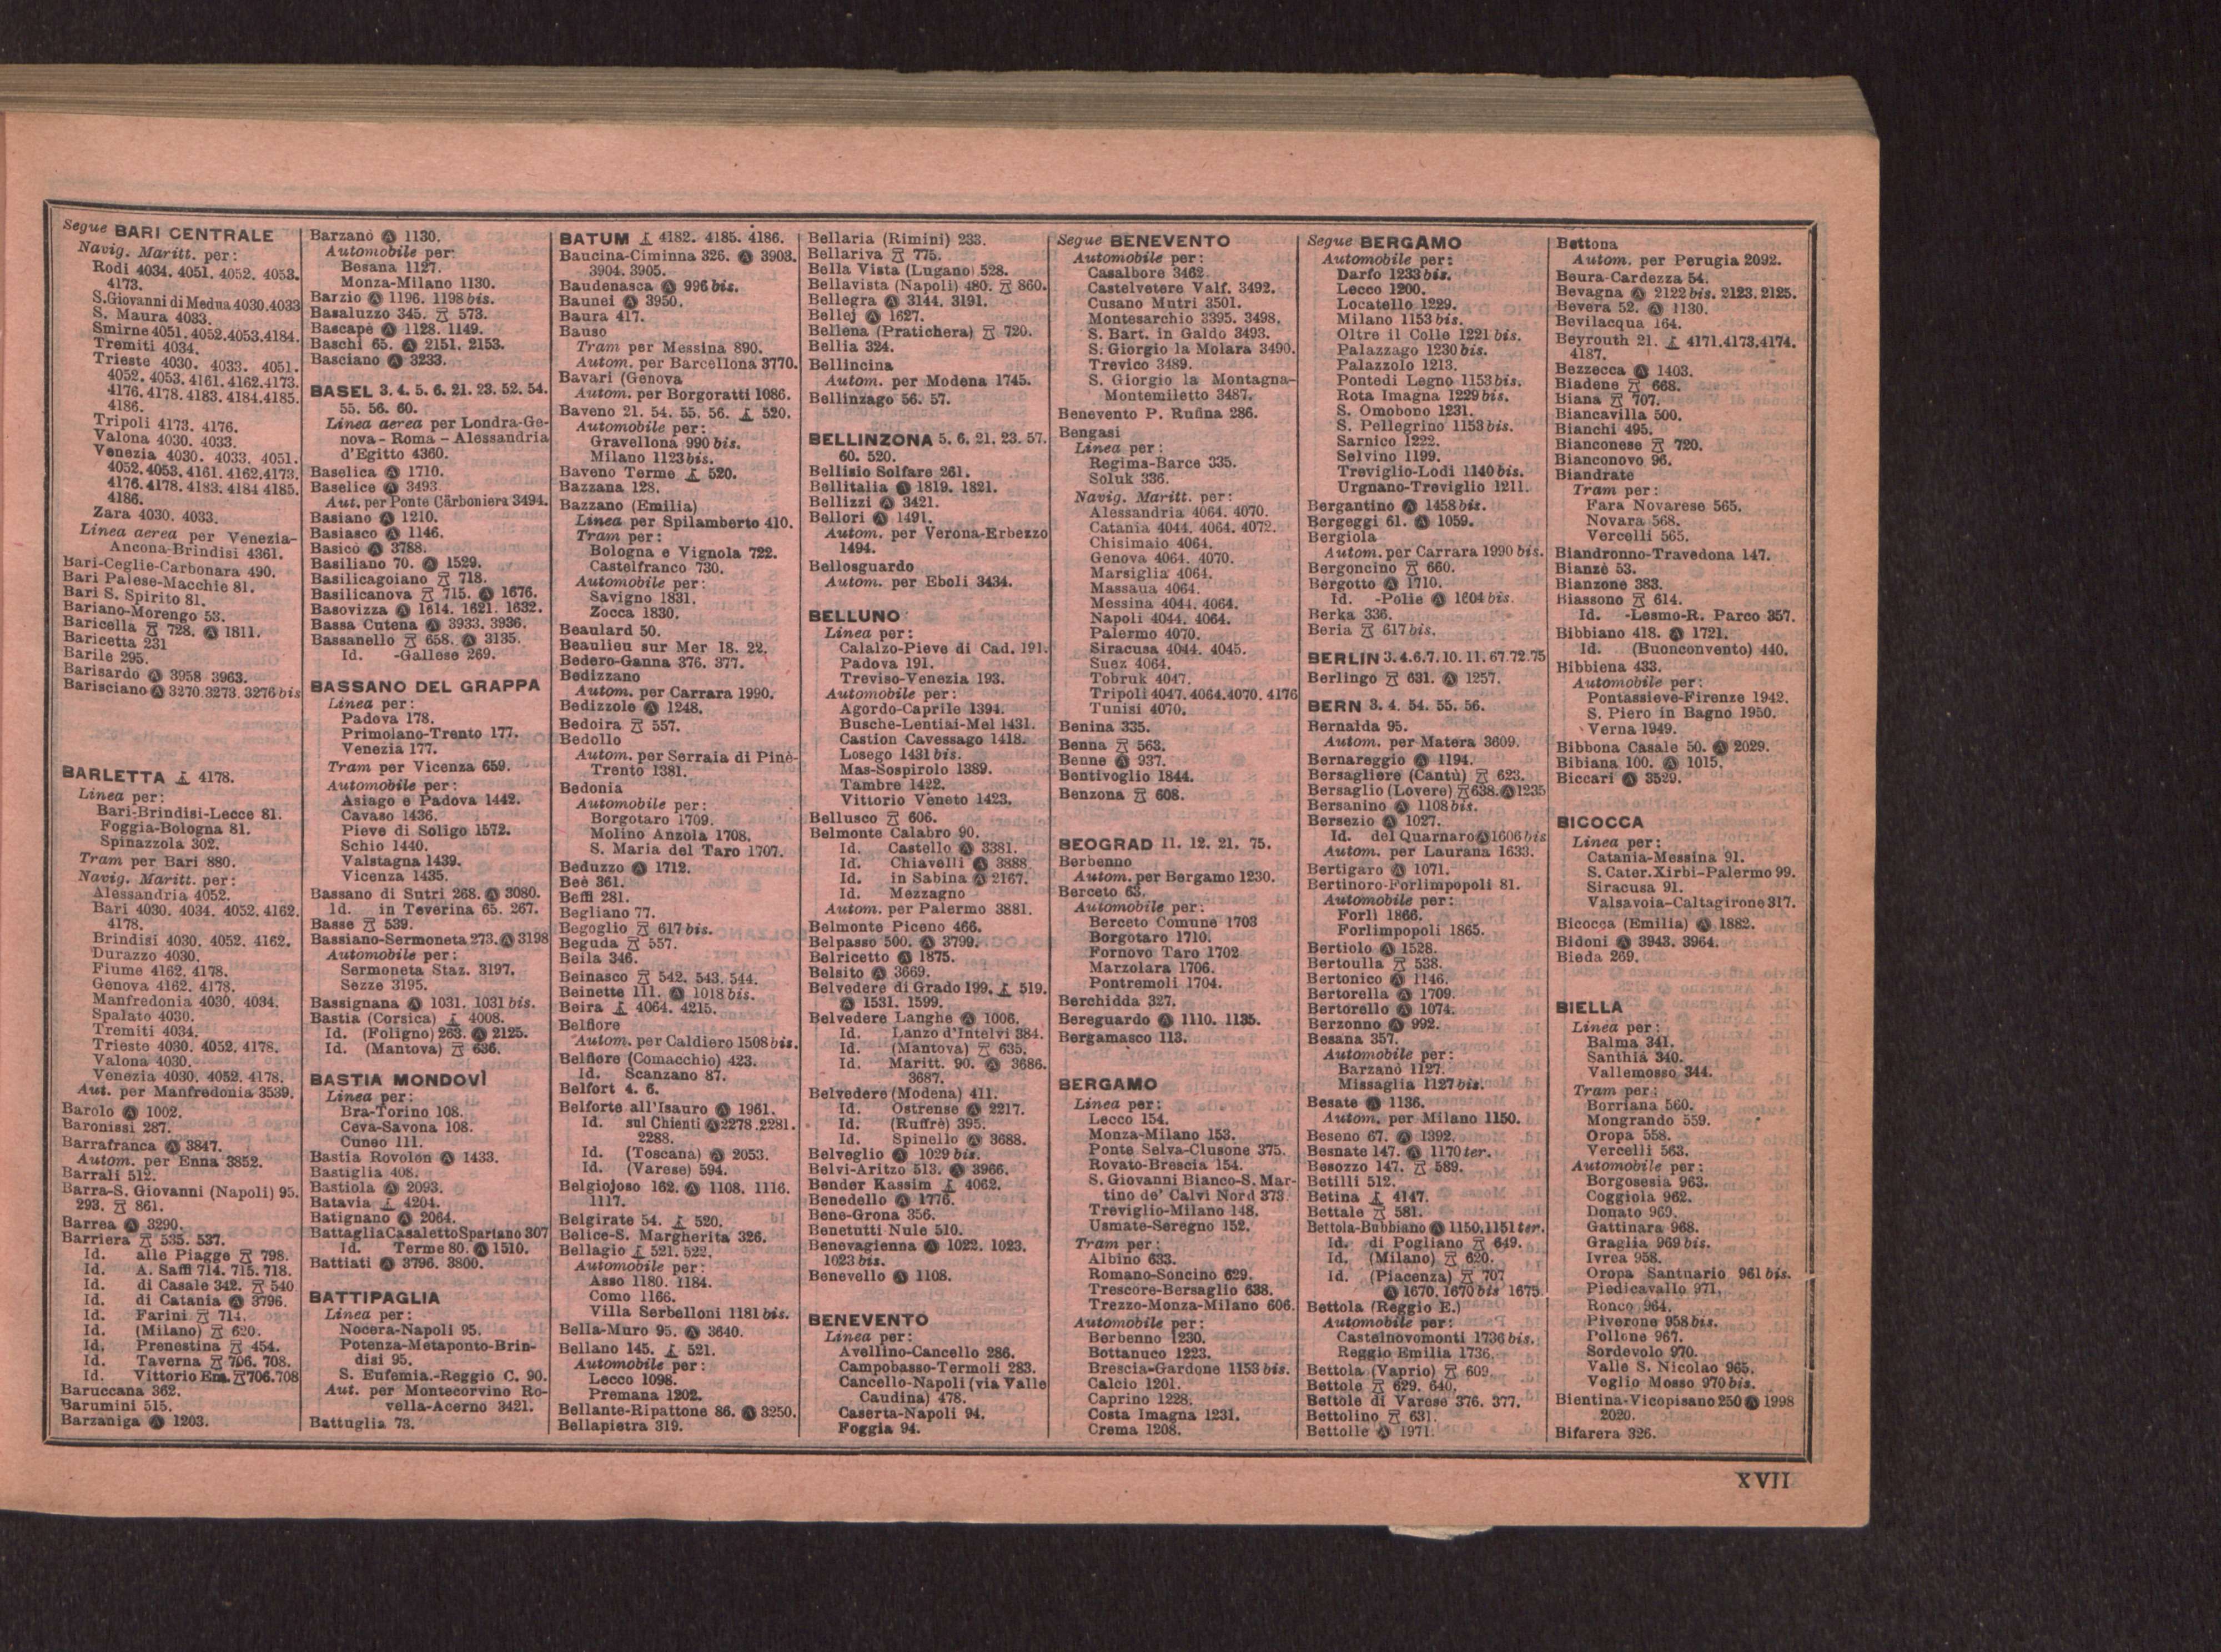 Segue BARI CENTRALE
Navig. Maritt. per:
Rodi 4034. 4051. 4052. 4053.
4173.
S.Giovanni di Medua 4030.4033
S. Maura 4033.
Smirne 4051. 4052.4053.4184.
Tremiti 4034.
Trieste 4030. 4033. 4051.
4052. 4053. 4161. 4162.4173.
4176. 4178. 4183. 4184.4185.
4186.
Tripoli 4173. 4176.
Valona 4030. 4033.
Venezia 4030. 4033. 4051.
4052. 4053. 4161. 4162.4173.
4176. 4178. 4183. 4184 4185.
4186.
Zara 4030. 4033.
Linea aerea per Venezia-
Ancona-Brindisi 4361.
Bari-Ceglie-Carbonara 490.
Bari Palese-Macchie 81.
Bari S. Spirito 81.
Bariano-Morengo 53.
Baricella 728. Ⓐ 1811.
Baricetta 231
Barile 295.
Barisardo Ⓐ 3958 3963.
Barisciano Ⓐ 3270.3273. 3276 bis
BARLETTA 4178.
Linea per:
Bari-Brindisi-Lecce 81.
Foggia-Bologna 81.
Spinazzola 302.
Tram per Bari 880.
Navig. Maritt. per:
Alessandria 4052.
Bari 4030. 4034. 4052. 4162.
4178.
Brindisi 4030. 4052. 4162.
Durazzo 4030.
Fiume 4162. 4178.
Genova 4162. 4178.
Manfredonia 4030. 4034.
Spalato 4030.
Tremiti 4034.
Trieste 4030. 4052. 4178.
Valona 4030.
Venezia 4030. 4052. 4178.
Aut. per Manfredonia 3539.
Barolo Ⓐ 1002.
Baronissi 287.
Barrafranca Ⓐ 3847.
Autom. per Enna 3852.
Barrali 512.
Barra-S. Giovanni (Napoli) 95.
293. 861.
Barrea Ⓐ 3290.
Barriera 535. 537.
Id. alle Piagge 798.
Id. A. Saffi 714. 715. 718.
Id. di Casale 342. 540
Id. di Catania Ⓐ 3796.
Id. Farini 714.
Id. (Milano) 620.
Id. Prenestina 454.
Id. Taverna 706. 708.
Id. Vittorio Em. 706.708
Baruccana 362.
Barumini 515.
Barzaniga Ⓐ 1203.
Barzanò Ⓐ 1130.
Automobile per:
Besana 1127.
Monza-Milano 1130.
Barzio Ⓐ 1196. 1198 bis.
Basaluzzo 345. 573.
Bascapè Ⓐ 1128. 1149.
Baschi 65. Ⓐ 2151. 2153.
Basciano Ⓐ 3233.
BASEL 3. 4. 5. 6. 21. 23. 52. 54.
55. 56. 60.
Linea aerea per Londra-Ge-
nova - Roma - Alessandria
d'Egitto 4360.
Baselica Ⓐ 1710.
Baselice Ⓐ 3493.
Aut. per Ponte Carboniera 3494.
Basiano Ⓐ 1210.
Basiasco Ⓐ 1146.
Basicò Ⓐ 3788.
Basiliano 70. Ⓐ 1529.
Basilicagoiano 718.
Basilicanova 715. Ⓐ 1676.
Basovizza Ⓐ 1614. 1621. 1632.
Bassa Cutena Ⓐ 3933. 3936.
Bassanello 658. Ⓐ 3135.
Id. -Gallese 269.
BASSANO DEL GRAPPA
Linea per:
Padova 178.
Primolano-Trento 177.
Venezia 177.
Tram per Vicenza 659.
Automobile per:
Asiago e Padova 1442.
Cavaso 1436.
Pieve di Soligo 1572.
Schio 1440.
Valstagna 1439.
Vicenza 1435.
Bassano di Sutri 268. Ⓐ 3080.
Id. in Teverina 65. 267.
Basse 539.
Bassiano-Sermoneta 273. Ⓐ 3198
Automobile per:
Sermoneta Staz. 3197.
Sezze 3195.
Bassignana Ⓐ 1031. 1031 bis.
Bastia (Corsica) 4008.
Id. (Foligno) 263. Ⓐ 2125.
Id. (Mantova) 636.
BASTIA MONDOVÌ
Linea per:
Bra-Torino 108.
Ceva-Savona 108.
Cuneo 111.
Bastia Rovolon Ⓐ 1433.
Bastiglia 408.
Bastiola Ⓐ 2093.
Batavia 4204.
Batignano Ⓐ 2064.
Battaglia Casaletto Spartano 307
Id. Terme 80. Ⓐ 1510.
Battiati Ⓐ 3796. 3800.
BATTIPAGLIA
Linea per:
Nocera-Napoli 95.
Potenza-Metaponto-Brin-
disi 95.
S. Eufemia.-Reggio C. 90.
Aut. per Montecorvino Ro-
vella-Acerno 3421.
Battuglia 73.
BATUM 4182. 4185. 4186.
Baucina-Ciminna 326. Ⓐ 3903.
3904. 3905.
Baudenasca Ⓐ 996 bis.
Baunei Ⓐ 3950.
Baura 417.
Bauso
Tram per Messina 890.
Autom. per Barcellona 3770.
Bavari (Genova
Autom. per Borgoratti 1086.
Baveno 21. 54. 55. 56. 520.
Automobile per:
Gravellona 990 bis.
Milano 1123 bis.
Baveno Terme 520.
Bazzana 128.
Bazzano (Emilia)
Linea per Spilamberto 410.
Tram per:
Bologna e Vignola 722.
Castelfranco 730.
Automobile per:
Savigno 1831.
Zocca 1830.
Beaulard 50.
Beaulieu sur Mer 18. 22.
Bedero-Ganna 376. 377.
Bedizzano
Autom. per Carrara 1990.
Bedizzole Ⓐ 1248.
Bedoira 557.
Bedollo
Autom. per Serraia di Pinè-
Trento 1381.
Bedonia
Automobile per:
Borgotaro 1709.
Molino Anzola 1708.
S. Maria del Taro 1707.
Beduzzo Ⓐ 1712.
Beè 361.
Beffi 281.
Begliano 77.
Begoglio 617 bis.
Beguda 557.
Beila 346.
Beinasco 542. 543. 544.
Beinette 111. Ⓐ 1018 bis.
Beira 4064. 4215.
Belfiore
Autom. per Caldiero 1508 bis.
Belfiore (Comacchio) 423.
Id. Scanzano 87.
Belfort 4. 6.
Belforte all'Isauro Ⓐ 1961.
Id. sul Chienti Ⓐ 2278.2281.
2288.
Id. (Toscana) Ⓐ 2053.
Id. (Varese) 594.
Belgiojoso 162. Ⓐ 1108. 1116.
1117.
Belgirate 54. 520.
Belice-S. Margherita 326.
Bellagio 521. 522.
Automobile per:
Asso 1180. 1184.
Como 1166.
Villa Serbelloni 1181 bis.
Bella-Muro 95. Ⓐ 3640.
Bellano 145. 521.
Automobile per:
Lecco 1098.
Premana 1202.
Bellante-Ripattone 86. Ⓐ 3250.
Bellapietra 319.
Bellaria (Rimini) 233.
Bellariva 775.
Bella Vista (Lugano) 528.
Bellavista (Napoli) 480. 860.
Bellegra Ⓐ 3144. 3191.
Bellej Ⓐ 1627.
Bellena (Pratichera) 720.
Bellia 324.
Bellincina
Autom. per Modena 1745.
Bellinzago 56. 57.
BELLINZONA 5. 6. 21. 23. 57.
60. 520.
Bellisio Solfare 261.
Bellitalia Ⓐ 1819. 1821.
Bellizzi Ⓐ 3421.
Bellori Ⓐ 1491.
Autom. per Verona-Erbezzo
1494.
Bellosguardo
Autom. per Eboli 3434.
BELLUNO
Linea per:
Calalzo-Pieve di Cad. 191.
Padova 191.
Treviso-Venezia 193.
Automobile per:
Agordo-Caprile 1394.
Busche-Lentiai-Mel 1431.
Castion Cavessago 1418.
Losego 1431 bis.
Mas-Sospirolo 1389.
Tambre 1422.
Vittorio Veneto 1423.
Bellusco 606.
Belmonte Calabro 90.
Id. Castello Ⓐ 3381.
Id. Chiavelli Ⓐ 3888.
Id. in Sabina Ⓐ 2167.
Id. Mezzagno
Autom. per Palermo 3881.
Belmonte Piceno 466.
Belpasso 500. Ⓐ 3799.
Belricetto Ⓐ 1875.
Belsito Ⓐ 3669.
Belvedere di Grado 199. 519.
Ⓐ 1531. 1599.
Belvedere Langhe Ⓐ 1006.
Id. Lanzo d'Intelvi 384.
Id. (Mantova) 635.
Id. Maritt. 90. Ⓐ 3686.
3687.
Belvedere (Modena) 411.
Id. Ostrense Ⓐ 2217.
Id. (Ruffrè) 395.
Id. Spinello Ⓐ 3688.
Belveglio Ⓐ 1029 bis.
Belvì-Aritzo 513. Ⓐ 3966.
Bender Kassim 4062.
Benedello Ⓐ 1776.
Bene-Grona 356.
Benetutti Nule 510.
Benevagienna Ⓐ 1022. 1023.
1023 bis.
Benevello Ⓐ 1108.
BENEVENTO
Linea per:
Avellino-Cancello 286.
Campobasso-Termoli 283.
Cancello-Napoli (via Valle
Caudina) 478.
Caserta-Napoli 94.
Foggia 94.
Segue BENEVENTO
Automobile per:
Casalbore 3462.
Castelvetere Valf. 3492.
Cusano Mutri 3501.
Montesarchio 3395. 3498.
S. Bart. in Galdo 3493.
S. Giorgio la Molara 3490.
Trevico 3489.
S. Giorgio la Montagna-
Montemiletto 3487.
Benevento P. Rufina 286.
Bengasi
Linea per:
Regima-Barce 335.
Soluk 336.
Navig. Maritt. per:
Alessandria 4064. 4070.
Catania 4044. 4064. 4072.
Chisimaio 4064.
Genova 4064. 4070.
Marsiglia 4064.
Massaua 4064.
Messina 4044. 4064.
Napoli 4044. 4064.
Palermo 4070.
Siracusa 4044. 4045.
Suez 4064.
Tobruk 4047.
Tripoli 4047. 4064.4070. 4176
Tunisi 4070.
Benina 335.
Benna 563.
Benne Ⓐ 937.
Bentivoglio 1844.
Benzona 608.
BEOGRAD 11. 12. 21. 75.
Berbenno
Autom. per Bergamo 1230.
Berceto 63.
Automobile per:
Berceto Comune 1703
Borgotaro 1710.
Fornovo Taro 1702
Marzolara 1706.
Pontremoli 1704.
Berchidda 327.
Bereguardo Ⓐ 1110. 1135.
Bergamasco 113.
BERGAMO
Linea per:
Lecco 154.
Monza-Milano 153.
Ponte Selva-Clusone 375.
Rovato-Brescia 154.
S. Giovanni Bianco-S. Mar-
tino de' Calvi Nord 373.
Treviglio-Milano 148.
Usmate-Seregno 152.
Tram per:
Albino 633.
Romano-Soncino 629.
Trescore-Bersaglio 638.
Trezzo-Monza-Milano 606.
Automobile per:
Berbenno 1230.
Bottanuco 1223.
Brescia-Gardone 1153 bis.
Calcio 1201.
Caprino 1228.
Costa Imagna 1231.
Crema 1208.
Segue BERGAMO
Automobile per:
Darfo 1233 bis.
Lecco 1200.
Locatello 1229.
Milano 1153 bis.
Oltre il Colle 1221 bis.
Palazzago 1230 bis.
Palazzolo 1213.
Pontedi Legno 1153 bis.
Rota Imagna 1229 bis.
S. Omobono 1231.
S. Pellegrino 1153 bis.
Sarnico 1222.
Selvino 1199.
Treviglio-Lodi 1140 bis.
Urgnano-Treviglio 1211.
Bergantino Ⓐ 1458 bis.
Bergeggi 61. Ⓐ 1059.
Bergiola
Autom. per Carrara 1990 bis.
Bergoncino 660.
Bergotto Ⓐ 1710.
Id. -Polie Ⓐ 1604 bis.
Berka 336.
Beria 617 bis.
BERLIN 3. 4. 6. 7. 10. 11. 67. 72. 75
Berlingo 631. Ⓐ 1257.
BERN 3. 4. 54. 55. 56.
Bernalda 95.
Autom. per Matera 3609.
Bernareggio Ⓐ 1194.
Bersagliere (Cantù) 623.
Bersaglio (Lovere) 638. Ⓐ 1235
Bersanino Ⓐ 1108 bis.
Bersezio Ⓐ 1027.
Id. del Quarnaro Ⓐ 1606 bis
Autom. per Laurana 1633.
Bertigaro Ⓐ 1071.
Bertinoro-Forlimpopoli 81.
Automobile per:
Forlì 1866.
Forlimpopoli 1865.
Bertiolo Ⓐ 1528.
Bertoulla 538.
Bertonico Ⓐ 1146.
Bertorella Ⓐ 1709.
Bertorello Ⓐ 1074.
Berzonno Ⓐ 992.
Besana 357.
Automobile per:
Barzanò 1127.
Missaglia 1127 bis.
Besate Ⓐ 1136.
Autom. per Milano 1150.
Beseno 67. Ⓐ 1392.
Besnate 147. Ⓐ 1170 ter.
Besozzo 147. 589.
Betilli 512.
Betina 4147.
Bettale 581.
Bettola-Bubbiano Ⓐ 1150.1151 ter.
Id. di Pogliano 649.
Id. (Milano) 620.
Id. (Piacenza) 707
Ⓐ 1670. 1670 bis 1675.
Bettola (Reggio E.)
Automobile per:
Castelnovomonti 1736 bis.
Reggio Emilia 1736.
Bettola (Vaprio) 609.
Bettole 629. 640.
Bettole di Varese 376. 377.
Bettolino 631.
Bettolle Ⓐ 1971.
Bettona
Autom. per Perugia 2092.
Beura-Cardezza 54.
Bevagna Ⓐ 2122 bis. 2123. 2125.
Bevera 52. Ⓐ 1130.
Bevilacqua 164.
Beyrouth 21. 4171.4173.4174.
4187.
Bezzecca Ⓐ 1403.
Biadene 668.
Biana 707.
Biancavilla 500.
Bianchi 495.
Bianconese 720.
Bianconovo 96.
Biandrate
Tram per:
Fara Novarese 565.
Novara 568.
Vercelli 565.
Biandronno-Travedona 147.
Bianzè 53.
Bianzone 383.
Biassono 614.
Id. -Lesmo-R. Parco 357.
Bibbiano 418. Ⓐ 1721.
Id. (Buonconvento) 440.
Bibbiena 433.
Automobile per:
Pontassieve-Firenze 1942.
S. Piero in Bagno 1950.
Verna 1949.
Bibbona Casale 50. Ⓐ 2029.
Bibiana 100. Ⓐ 1015.
Biccari Ⓐ 3529.
BICOCCA
Linea per:
Catania-Messina 91.
S. Cater.Xirbi-Palermo 99.
Siracusa 91.
Valsavoia-Caltagirone 317.
Bicocca (Emilia) Ⓐ 1882.
Bidoni Ⓐ 3943. 3964.
Bieda 269.
BIELLA
Linea per:
Balma 341.
Santhià 340.
Vallemosso 344.
Tram per:
Borriana 560.
Mongrando 559.
Oropa 558.
Vercelli 563.
Automobile per:
Borgosesia 963.
Coggiola 962.
Donato 969.
Gattinara 968.
Graglia 969 bis.
Ivrea 958.
Oropa Santuario 961 bis.
Piedicavallo 971.
Ronco 964.
Piverone 958 bis.
Pollone 967.
Sordevolo 970.
Valle S. Nicolao 965.
Veglio Mosso 970 bis.
Bientina-Vicopisano 250 Ⓐ 1998
2020.
Bifarera 326.
XVII